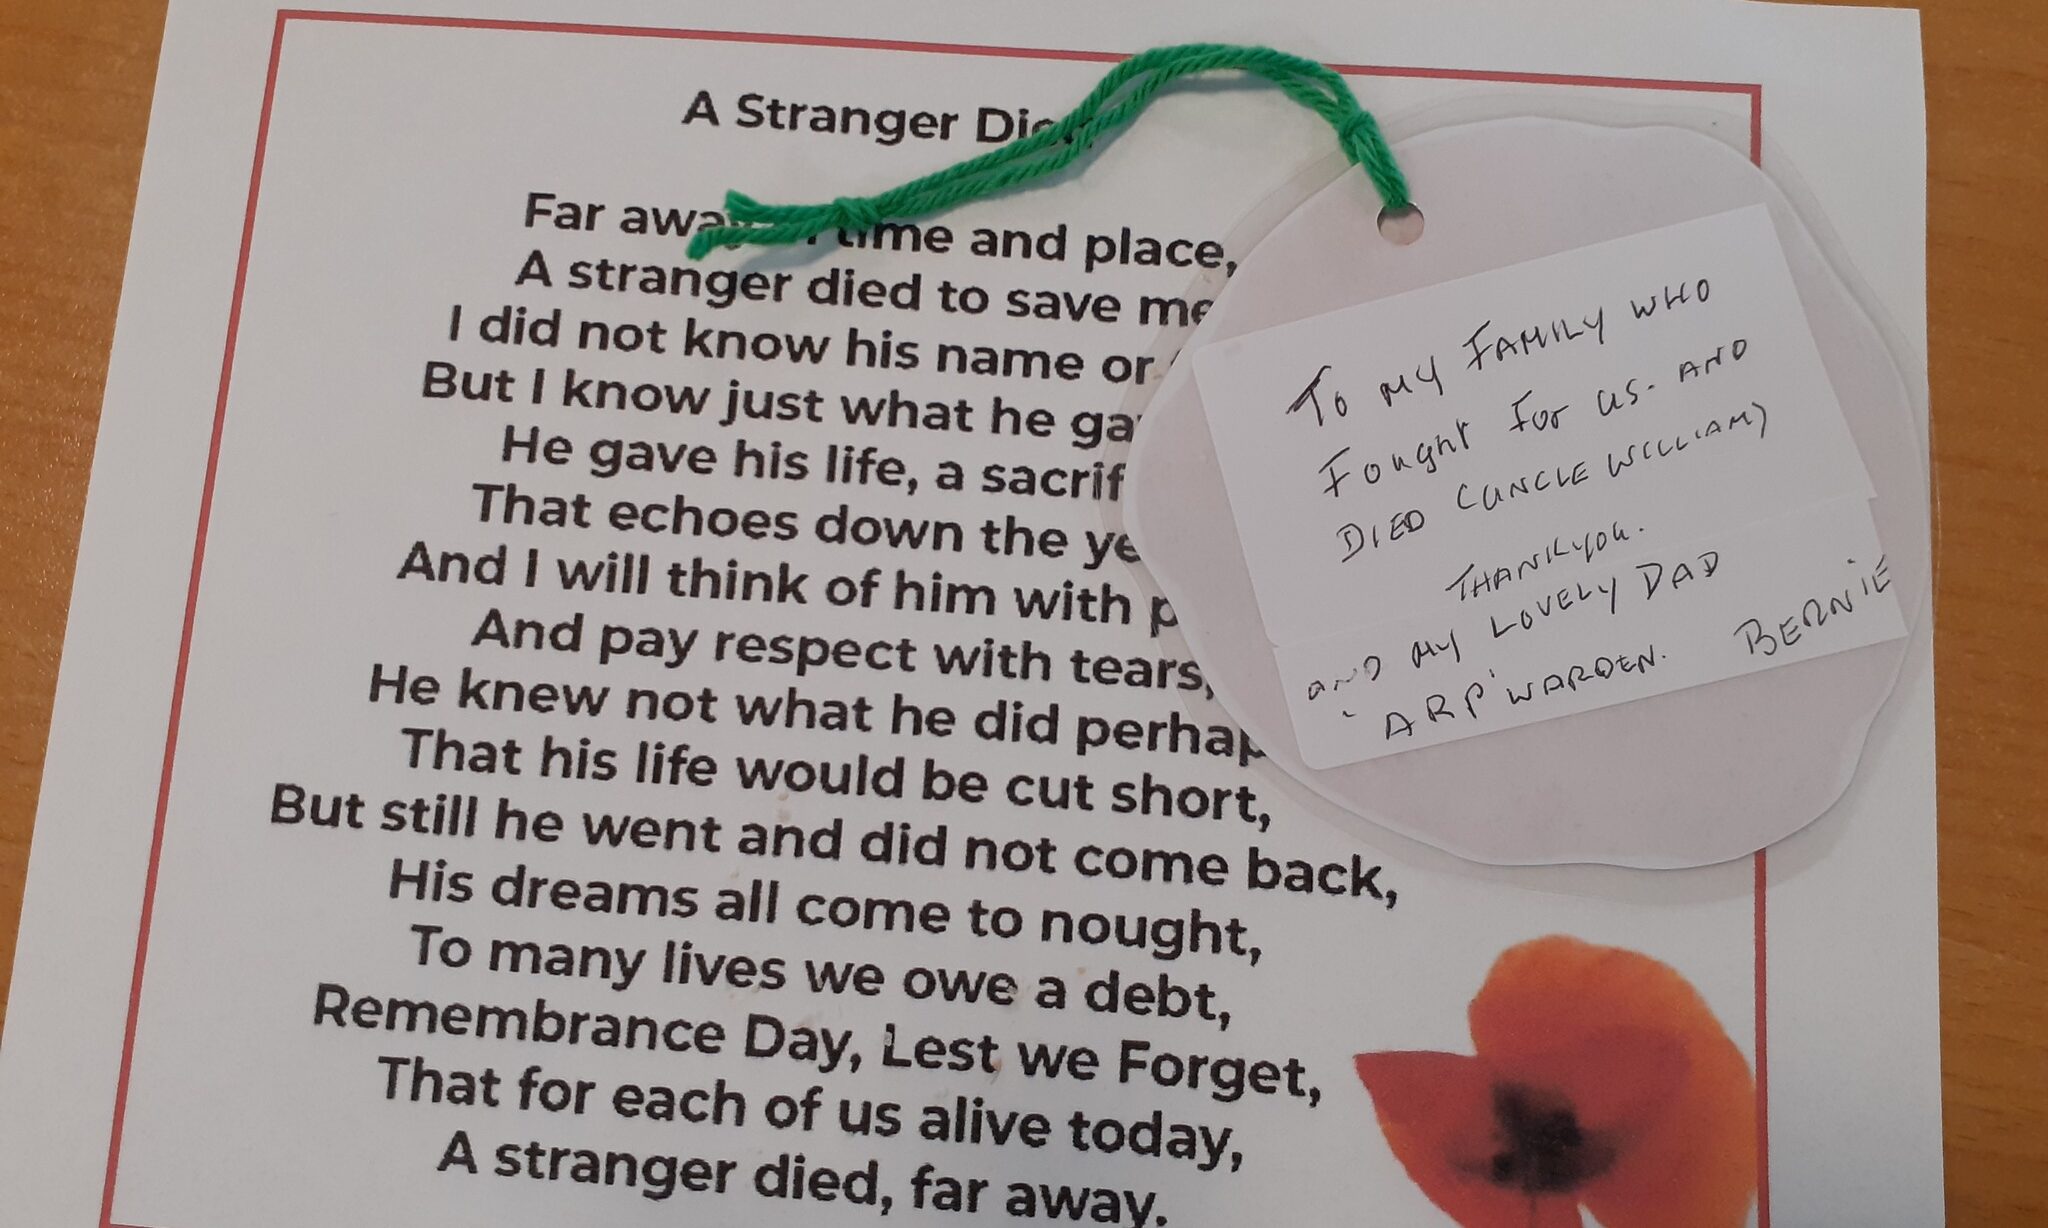 A Stranger
Far time and place,
A stranger died to save
I did not know his name or
But I know just what he
He gave his life, a
That echoes down the
And I will think of him with
And pay respect with tears,
He knew not what he did
That his life would be cut short,
But still he went and did not come back,
His dreams all come to nought,
To many lives we owe a debt,
Remembrance Day, Lest we Forget,
That for each of us alive today,
A stranger died, far away.
To MY FAMILY WHO
Fought For us. AND
DIED (UNCLE WILLIAM)
THANKYOU.
AND MY LOVELY DAD
'ARP' WARDEN. BERNIE